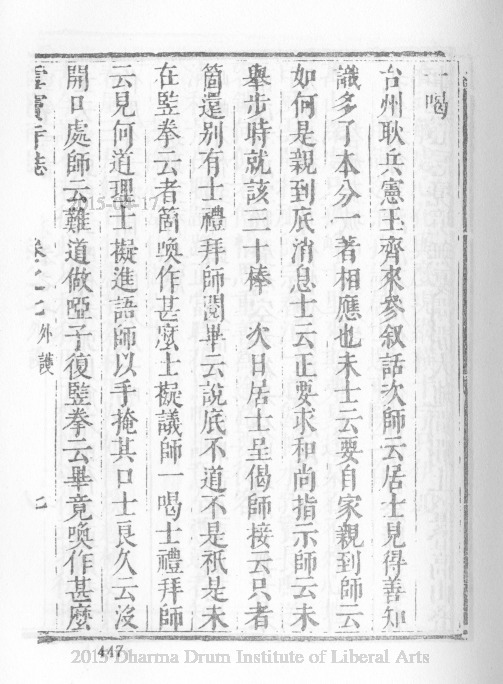 一喝
台州耿兵憲玉齊來參叙話次師云居士見得善知
識多了本分一著相應也未士云要自家親到師云
如何是親到底消息士云正要求和尚指示師云未
舉步時就該三十棒　次日居士呈偈師接云只者
箇還别有士禮拜師閱畢云說底不道不是祇是未
在竪拳云者箇喚作甚麼士擬議師一喝士禮拜師
云見何道理士擬進語師以手掩其口士良久云沒
開口處師云難道做啞子復竪拳云畢竟喚作甚麼
雲竇寺誌　卷之七　外護　七
2015
447
2015 Dharma Drum Institute of Liberal Arts